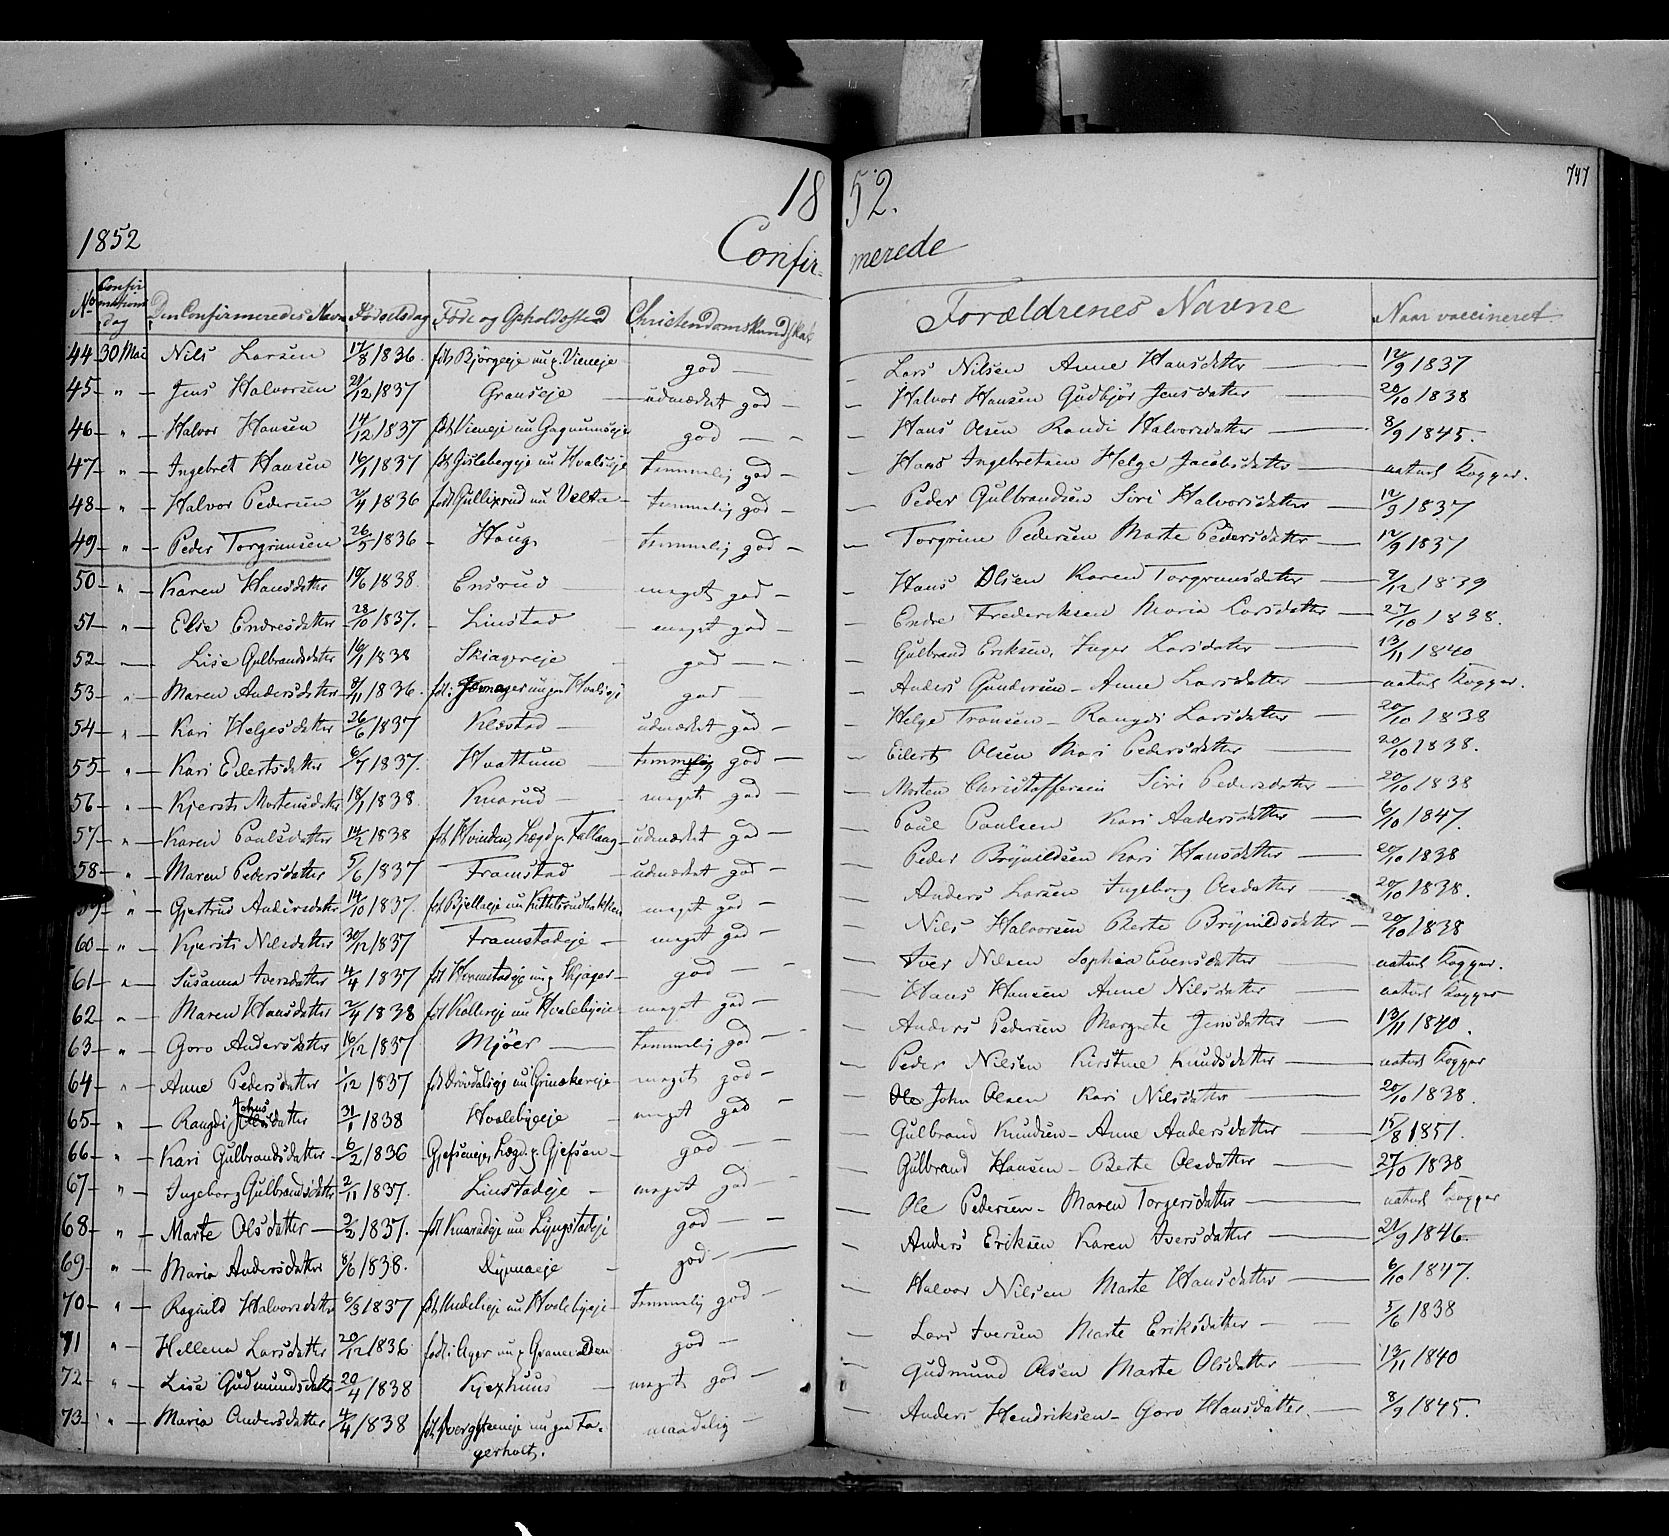 18 52.
747
1852
Confir- merede
No Confirmations dag Den Confirmeredes Navn Fødselsdag Føde og Opholdssted Christendomskundskab Forældrenes Navne Naar vaccineret
44 30 Mai Nils Larsen 17/8 1836. fdt Bjørgeeje nu p. Vieneje god — Lars Nilsen Anne Hansdatter — 12/9 1837
45 — " — Jens Halvorsen 21/12 1837 Granseje — udmærket god — Halvor Hansen Gudbjør Jensdatter — 20/10 1838
46 — " — Halvor Hansen 14/12 1837 fdt Vieneje nu god — — Hans Olsen Randi Halvorsdatter — 8/9 1845.
47 — " — Ingebret Hansen 16/1 1837 fdt Gislebergeje nu Hvalseje temmelig god — Hans Ingebretsen Helge Jacobsdatter — naturl. Kopper.
48 — " — Halvor Pedersen 2/4 1836 født Gullixrud nu Velta — temmelig god — Peder Gulbrandsen Siri Halvorsdatter — 12/9 1837
49 — " — Peder Torgrimsen 26/5 1836 — Haug temmelig god — Torgrim Pedersen Marte Pedersdatter — 12/9 1837
50 — " — Karen Hansdatter 10/6 1838. Ensrud meget god — Hans Olsen Karen Torgrimsdatter — 9/12 1839
51 — " — Else Endresdatter 28/10 1837. — Linstad — meget god — Endre Frederiksen Maria Larsdatter — 27/10 1838.
52 — Lise Gulbrandsdatter 16/1 1838 Skiagereje god — — Gulbrand Eriksen, Inger Larsdatter — 13/11 1840
53 — " — Maren Andersdatter 8/11 1836. fdt i god — Anders Gundersen — Anne Larsdatter — naturl. Kopper.
54 — " — Kari Helgesdatter 26/6 1837 Klæstad — udmærket god — Helge Tronsen — Rangdi Larsdatter — 20/10 1838
55 — " — Kari Eilertsdatter 6/7 1837. Hvattum — temmelig god — Eilert Olsen Mari Pedersdatter — 20/10 1838.
56 — " — Kjersti Mortensdatter 18/1 1838. Knarud — meget god — Morten Christoffersen Siri Pedersdatter — 20/10 1838
57 — " — Karen Paulsdatter 14/2 1838 fdt Hvinden, Lægd p. Fallang — udmærket god — Paul Paulsen Kari Andersdatter — 6/10 1847.
58 — " — Maren Pedersdatter 5/6 1837 Framstad — udmærket god — Peder Brynildsen Kari Hansdatter — 20/10 1838
59 — " — Gjertrud Andersdatter 14/10 1837. fdt Bjelleeje nu meget god — Anders Larsen Ingeborg Olsdatter — 20/10 1838.
60 — " — Kjersti Nilsdatter 30/12 1837 Framstadeje — meget god — Nils Halvorsen Berte Brynildsdatter — 20/10 1838
61 — " — Susanna Iversdatter 4/4 1837 fdt Framstadeje nu p. Skjager — god — — Iver Nilsen Sophia Evensdatter — naturl. Kopper.
62 — " — Maren Hansdatter 2/4 1838 fdt Kolleeje nu Hvalebyeie meget god — Hans Hansen Anne Nilsdatter — naturl. Kopper —
63 — " — Goro Andersdatter 16/12 1837 Mjöer — temmelig god — Anders Pedersen Margrete Jensdatter — 13/11 1840.
64 — " — Anne Pedersdatter 1/12 1837 fdt nu Grinakereje — meget god — Peder Nilsen Kirstine Knudsdatter — naturl. Kopper
65 — " — Rangdi Johns datter 31/1 1838 Hvalebyeje — meget god — Ole John Olsen Kari Nilsdatter — 20/10 1838.
66 — " — Kari Gulbrandsdatter — 6/2 1836 Gjefseneje, Lægd p. Gjefsen — god — — Gulbrand Knudsen — Anne Andersdatter — 15/8 1851.
67 — " — Ingeborg Gulbrandsdatter 2/11 1837. Linstadeje — meget god — Gulbrand Hansen — Berte Olsdatter — 27/10 1838
68 — " — Marte Olsdatter — 2/2 1837. fdt Knarudeje nu Lyngstadeje god — — Ole Pedersen — Maren Torgersdatter — naturl. Kopper
69 — " — Maria Andersdatter 8/6 1838. Dynnaeje — god — — Anders Eriksen Karen Iversdatter — 21/9 1846
70 — " — Ragnild Halvorsdatter 6/3 1837 fdt nu Hvalebyeje — temmelig god — Halvor Nilsen Marte Hansdatter — 6/10 1847.
71 " — Hellena Larsdatter 20/12 1836 født i Ager nu p. Gramadden god — Lars Iversen Marte Eriksdatter — 5/6 1838
72 — " — Lise Gudmundsdatter 20/4 1838 Kjexhuus — meget god — Gudmund Olsen Marte Olsdatter — 13/11 1840
73 — " — Maria Andersdatter 4/4 1838 fdt nu paa Fa- maadelig — Anders Hendriksen — Goro Hansdatter. 8/9 1845.
gerholt.